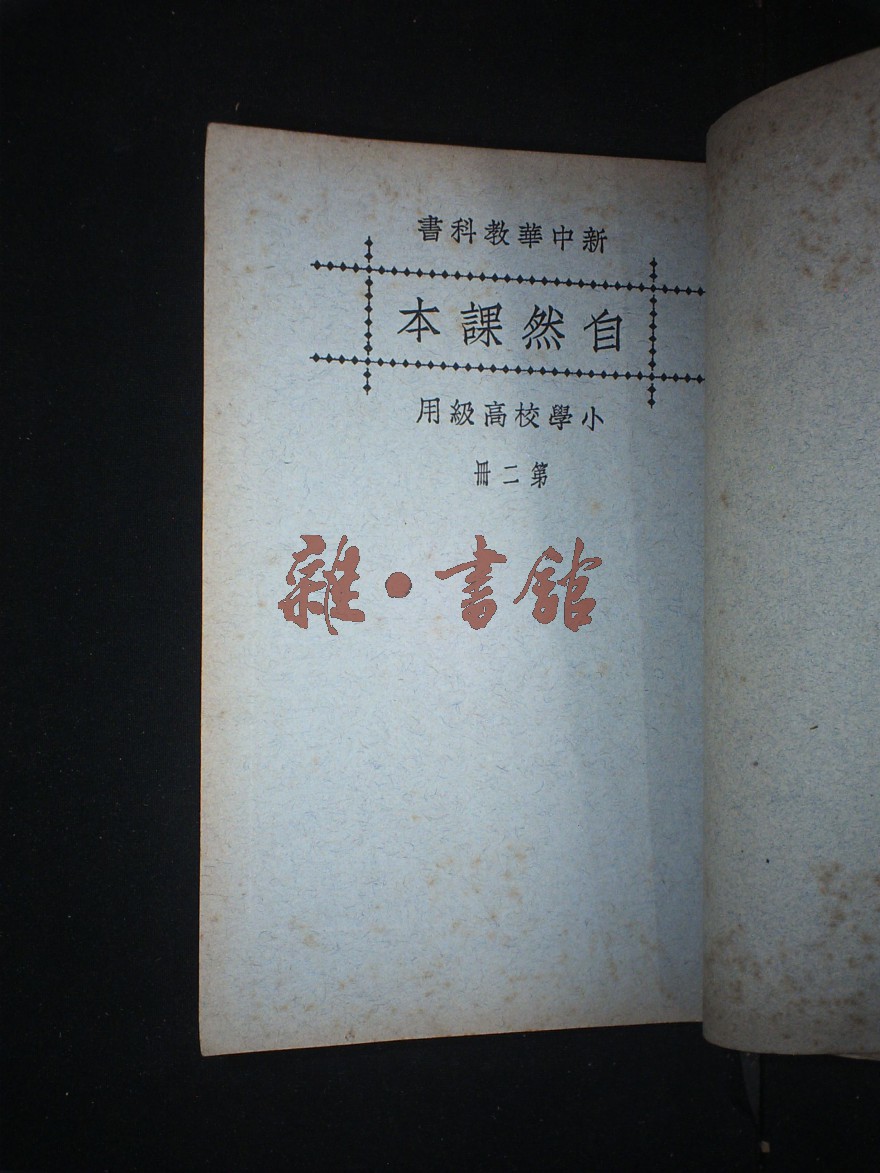 新中華教科書
自然課本
小學校高級用
第二冊
雜·書館